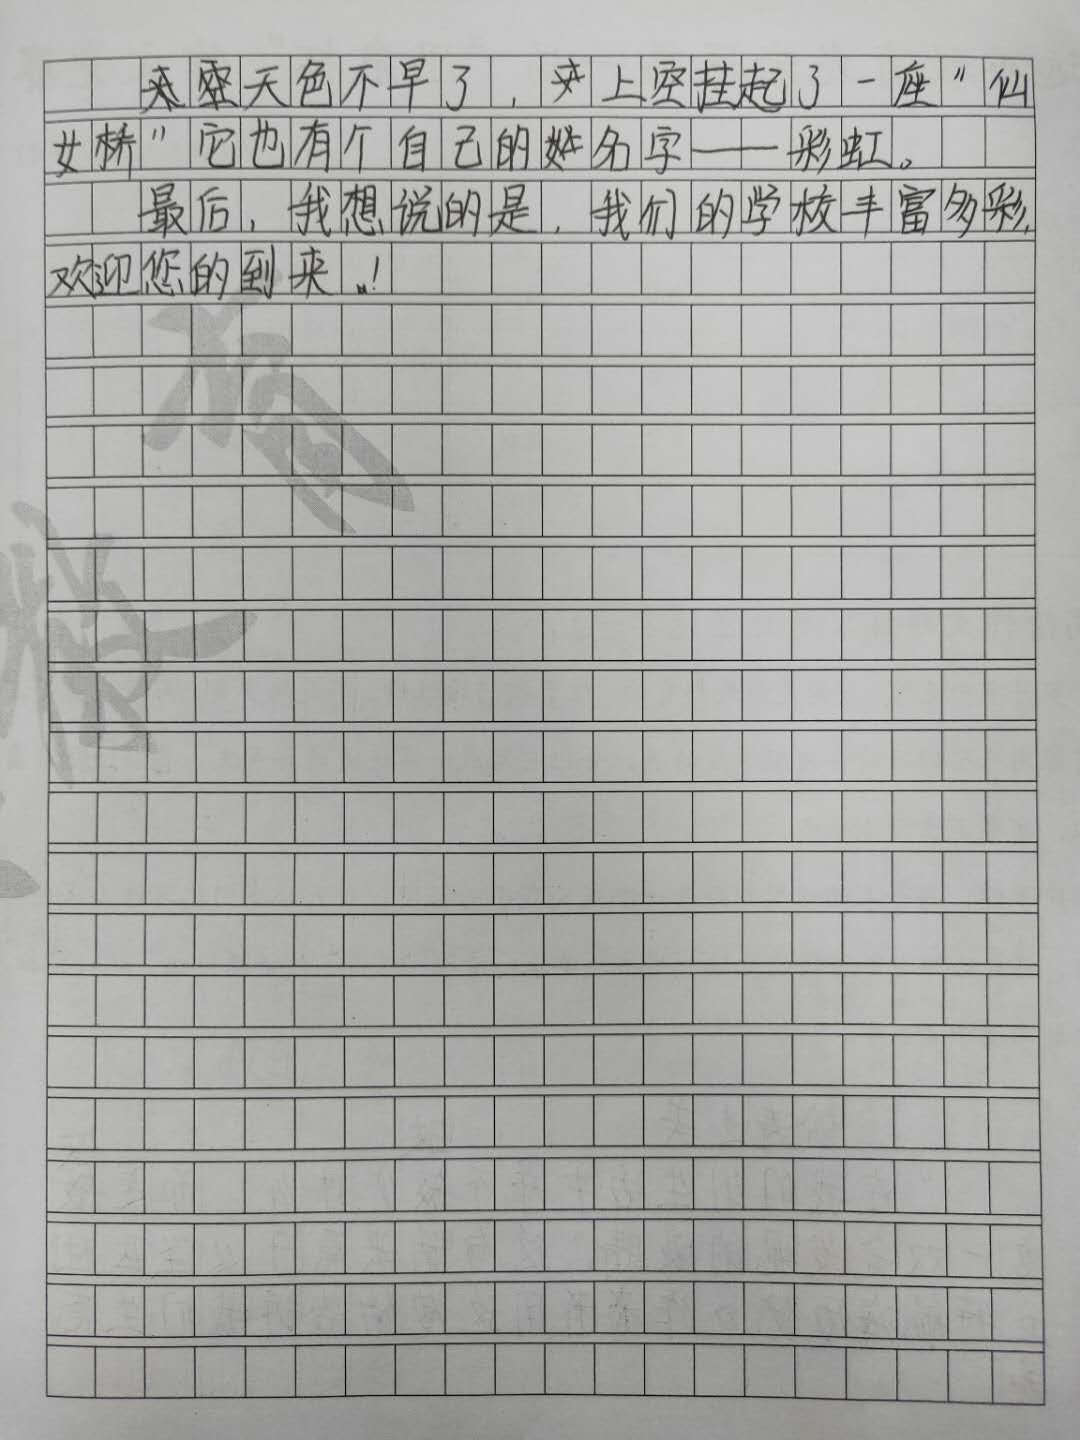 天色不早了，上空挂起了一座"仙
女桥"它也有个自己的名字——彩虹。
最后，我想说的是，我们的学校丰富多彩，
欢迎您的到来！